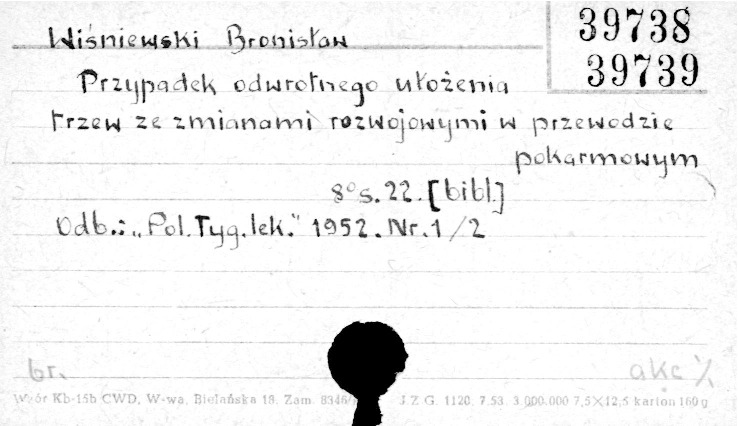 39738
39739
Wiśniewski Bronisław
Przypadek odwrotnego ułożenia
trzew ze zmianami rozwojowymi w przewodzie
pokarmowym
8° s. 22. [bibl.]
Odb.: „Pol. Tyg. lek." 1952. Nr. 1/2
br.
akc %
Wzór Kb-15b CWD, W-wa, Bielańska 18. Zam. 8346/ J.Z.G. 1120, 7.53. 3.000.000 7,5×12,5 karton 160 g